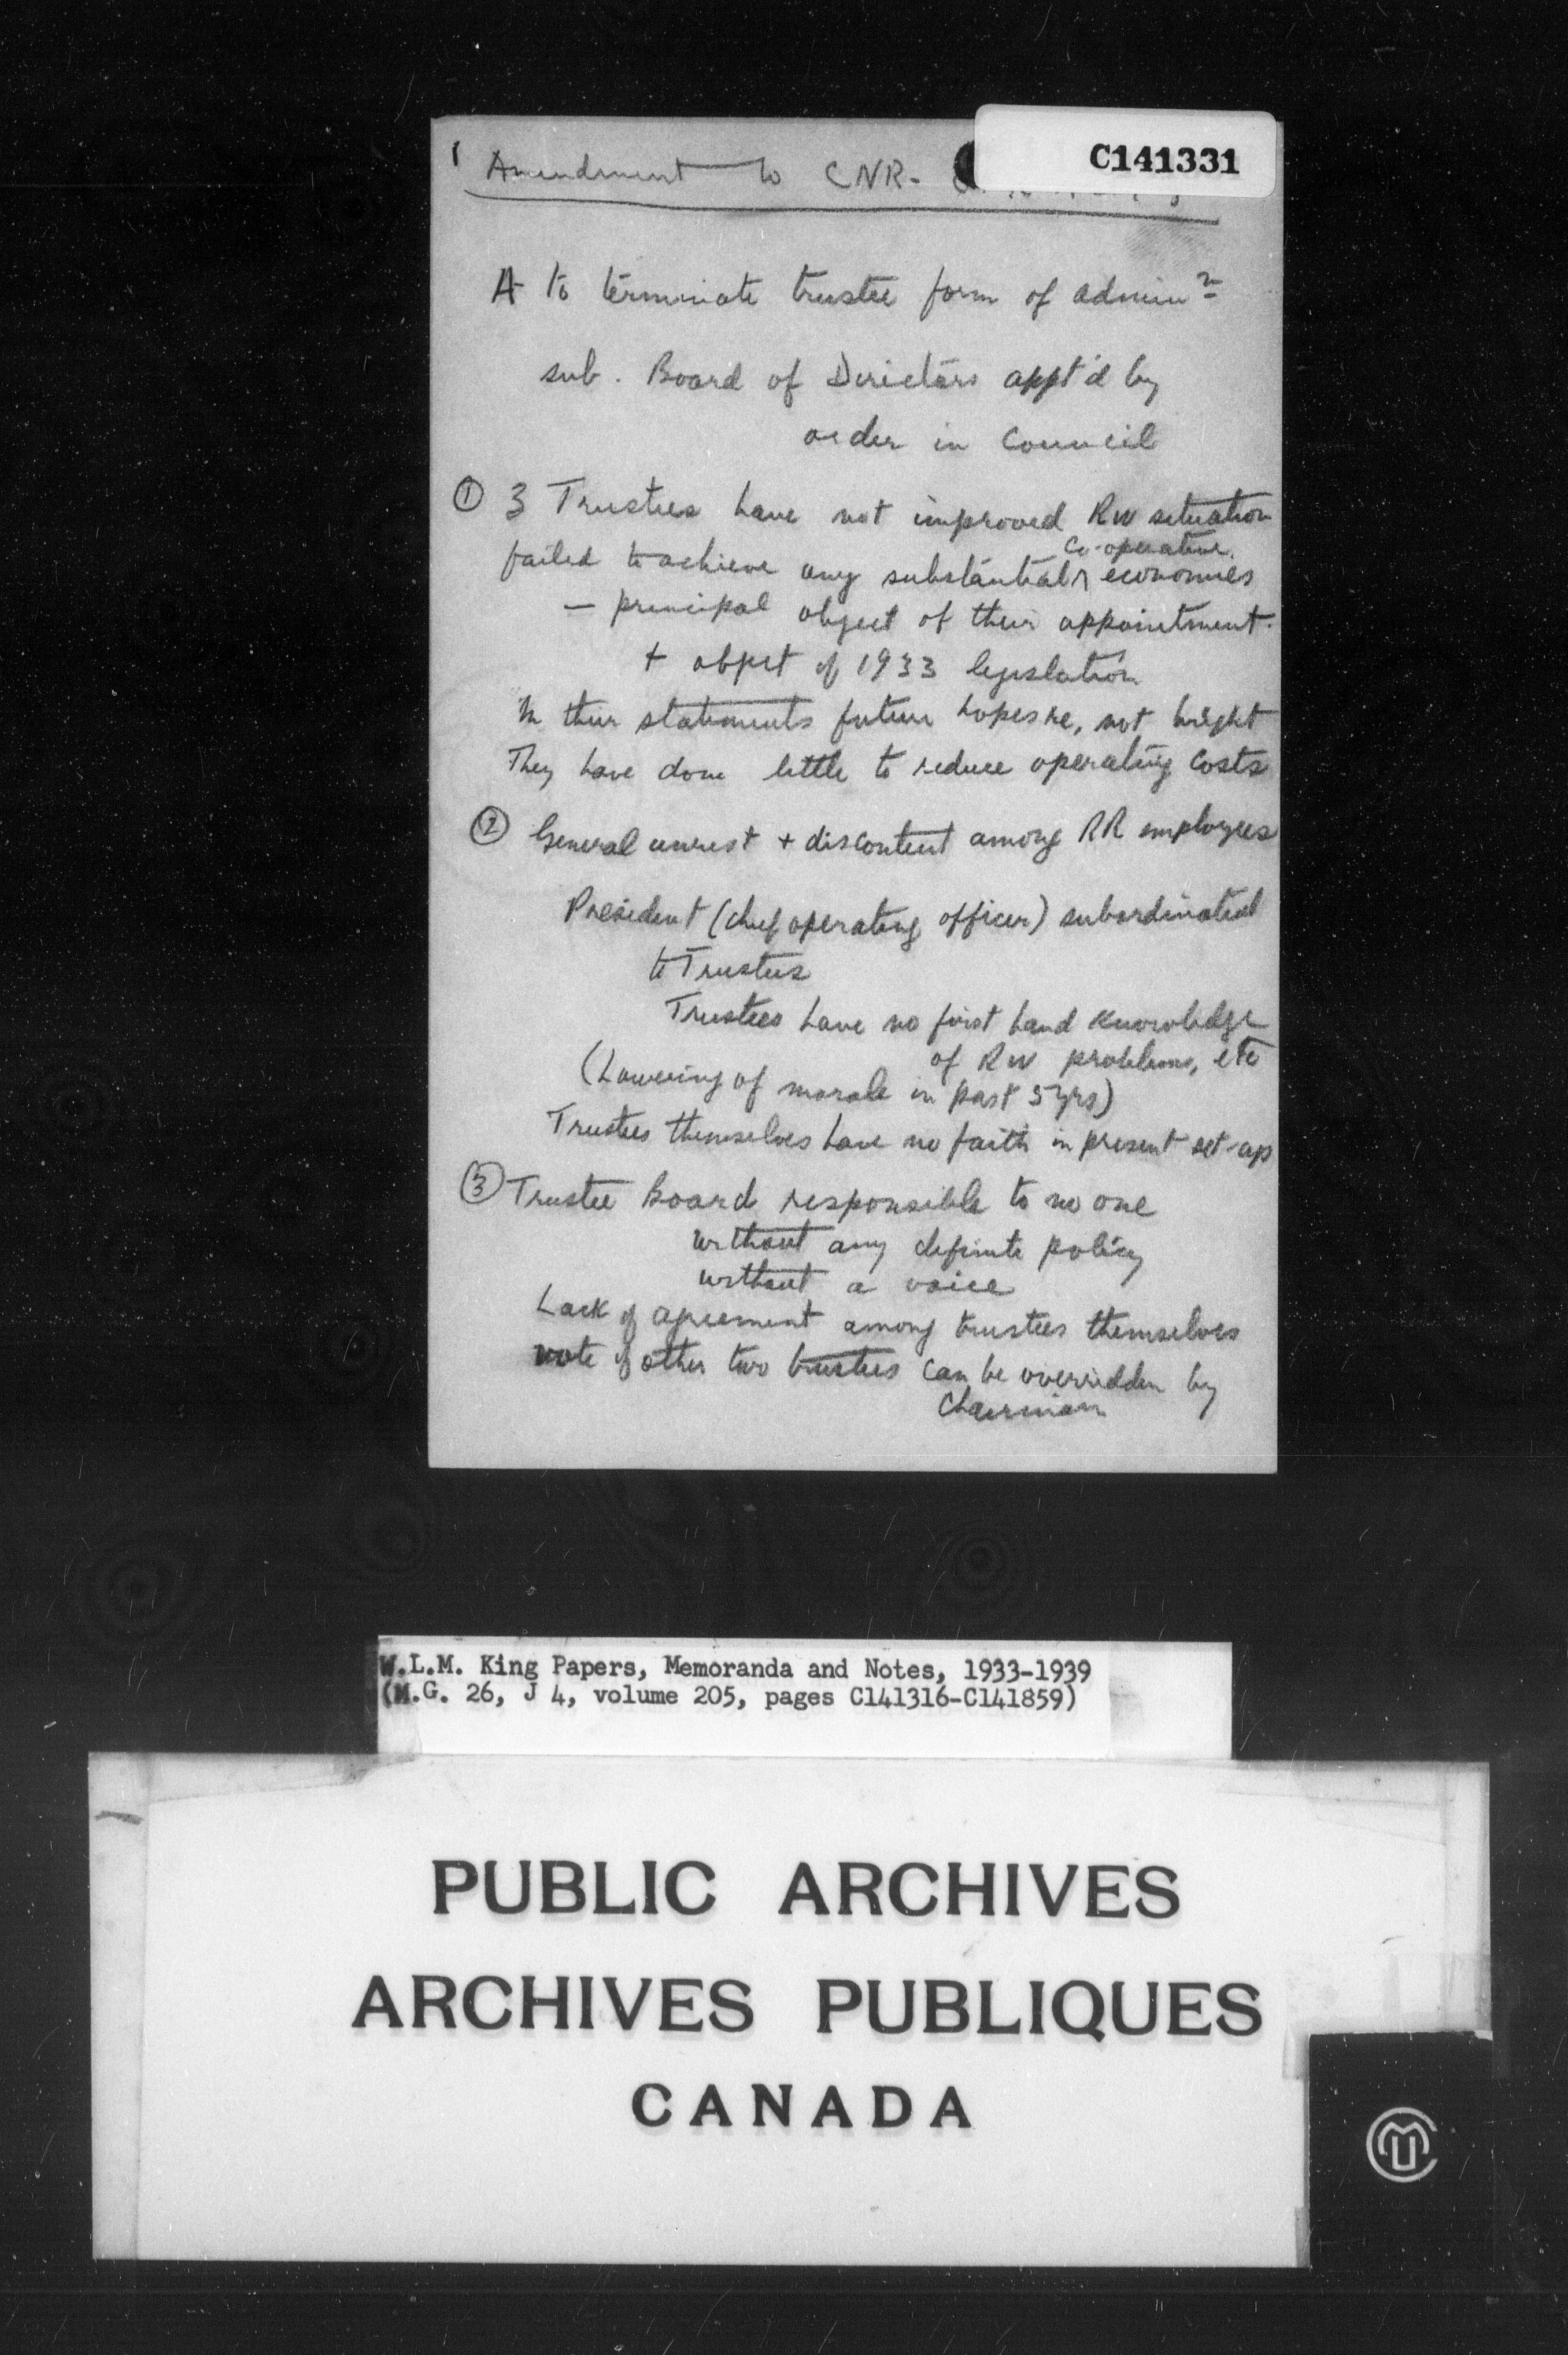 C141331
1 Amendment to CNR-
A to terminate trustee form of admin n
sub. Board of Directors appt'd by
order in Council
① 3 Trustees have not improved RW situation
failed to achieve any substantial co-operative economies
— principal object of their appointment.
+ object of 1933 legislation
In their statements future hopes re, not bright
They have done little to reduce operating costs
② General unrest + discontent among RR employees
President (chief operating officer) subordinated
to Trustees
Trustees have no first hand knowledge
of RW problems, etc
(Lowering of morale in past 5 yrs)
Trustees themselves have no faith in present set-up
③ Trustee Board responsible to no one
without any definite policy
without a voice
Lack of agreement among trustees themselves
vote of other two trustees can be overridden by
Chairman
W.L.M. King Papers, Memoranda and Notes, 1933-1939
(M.G. 26, J 4, volume 205, pages C141316-C141859)
PUBLIC ARCHIVES
ARCHIVES PUBLIQUES
CANADA